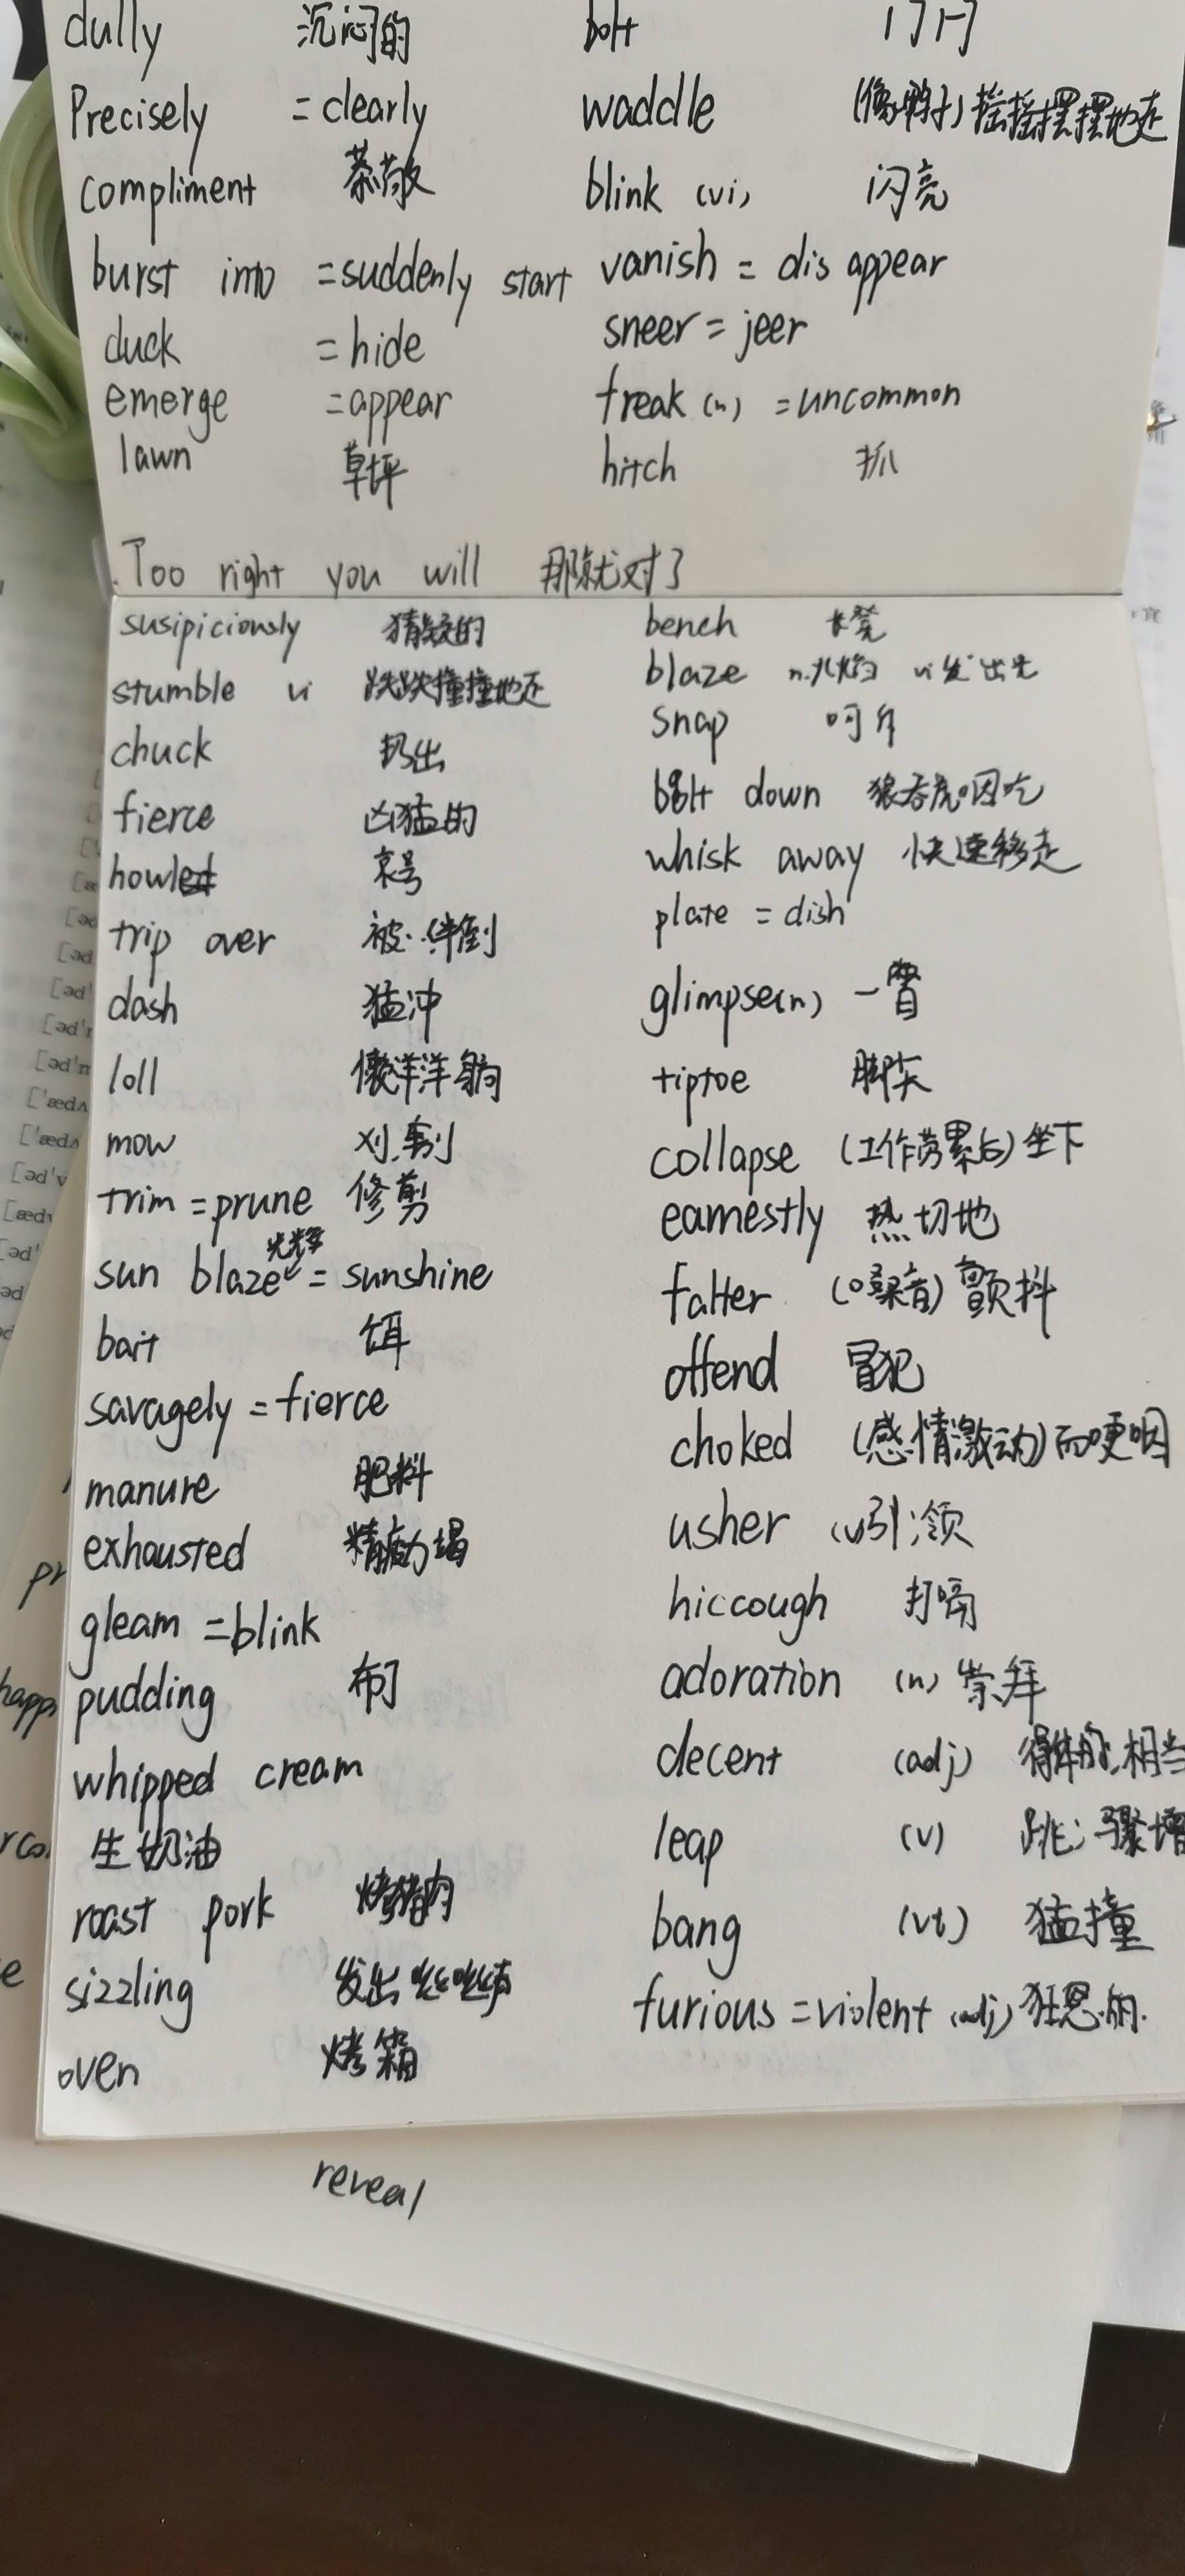 dully 沉闷的 bolt 门闩
Precisely = clearly waddle (像鸭子)摇摇摆摆地走
compliment 恭敬 blink (vi) 闪亮
burst into =suddenly start vanish = disappear
duck =hide sneer = jeer
emerge =appear freak (n) =uncommon
lawn 草坪 hitch 抓
.Too right you will 那就对了
susipiciously 猜疑的 bench 长凳
stumble vi 跌跌撞撞地走 blaze n.火焰 vi发出光
chuck 扔出 snap 呵斥
fierce 凶猛的 bolt down 狼吞虎咽吃
howl 哀号 whisk away 快速移走
trip over 被..绊倒 plate = dish
dash 猛冲 glimpse(n) 一瞥
loll 懒洋洋躺 tiptoe 脚尖
mow 刈.割 collapse (工作劳累后)坐下
trim =prune 修剪 earnestly 热切地
sun blaze 光辉 = sunshine falter (嗓音)颤抖
bait 饵 offend 冒犯
savagely = fierce choked (感情激动)而哽咽
manure 肥料 usher (v)引;领
exhausted 精疲力竭 hiccough 打嗝
gleam =blink adoration (n) 崇拜
pudding 布丁 decent (adj) 得体的,相当
whipped cream leap (v) 跳;骤增
生奶油 bang (vt) 猛撞
roast pork 烤猪肉 furious =violent (adj) 狂怒的.
sizzling 发出咝咝声
oven 烤箱
reveal